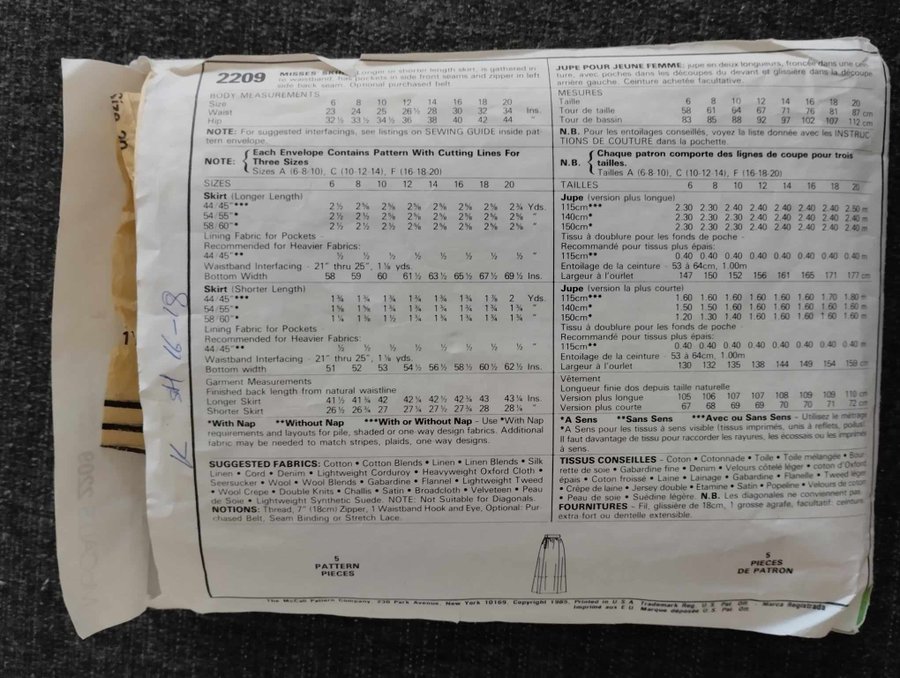 2209
MISSES' SKIRT: Longer or shorter length skirt, is gathered in
to waistband, has pockets in side front seams and zipper in left
side back seam. Optional purchased belt.
BODY MEASUREMENTS
Size 6 8 10 12 14 16 18 20
Waist 23 24 25 26½ 28 30 32 34 Ins.
Hip 32½ 33½ 34½ 36 38 40 42 44 "
NOTE: For suggested interfacings, see listings on SEWING GUIDE inside pat-
tern envelope.
NOTE: { Each Envelope Contains Pattern With Cutting Lines For
Three Sizes
Sizes A (6-8-10), C (10-12-14), F (16-18-20)
SIZES 6 8 10 12 14 16 18 20
Skirt (Longer Length)
44/45"*** 2½ 2⅝ 2⅝ 2⅝ 2⅝ 2⅝ 2⅝ 2¾ Yds.
54/55"* 2½ 2½ 2⅝ 2⅝ 2⅝ 2⅝ 2⅝ 2⅝ "
58/60"* 2½ 2½ 2⅝ 2⅝ 2⅝ 2⅝ 2⅝ 2⅝ "
Lining Fabric for Pockets -
Recommended for Heavier Fabrics:
44/45"** ½ ½ ½ ½ ½ ½ ½ ½ "
Waistband Interfacing - 21" thru 25", 1⅛ yds.
Bottom Width 58 59 60 61½ 63½ 65½ 67½ 69½ Ins.
Skirt (Shorter Length)
44/45"*** 1¾ 1¾ 1¾ 1¾ 1¾ 1¾ 1⅞ 2 Yds.
54/55"* 1⅝ 1⅝ 1¾ 1¾ 1¾ 1¾ 1¾ 1¾ "
58/60"* 1¼ 1⅜ 1½ 1¾ 1¾ 1¾ 1¾ 1¾ "
Lining Fabric for Pockets -
Recommended for Heavier Fabric:
44/45"** ½ ½ ½ ½ ½ ½ ½ ½ "
Waistband Interfacing - 21" thru 25", 1⅛ yds.
Bottom width 51 52 53 54½ 56½ 58½ 60½ 62½ Ins.
Garment Measurements
Finished back length from natural waistline
Longer Skirt 41½ 41¾ 42 42¼ 42½ 42¾ 43 43¼ Ins.
Shorter Skirt 26½ 26¾ 27 27¼ 27½ 27¾ 28 28¼ "
*With Nap **Without Nap ***With or Without Nap - Use *With Nap
requirements and layouts for pile, shaded or one-way design fabrics. Additional
fabric may be needed to match stripes, plaids, one way designs.
SUGGESTED FABRICS: Cotton • Cotton Blends • Linen • Linen Blends • Silk
Linen • Cord • Denim • Lightweight Corduroy • Heavyweight Oxford Cloth •
Seersucker • Wool • Wool Blends • Gabardine • Flannel • Lightweight Tweed
• Wool Crepe • Double Knits • Challis • Satin • Broadcloth • Velveteen • Peau
de Soie • Lightweight Synthetic Suede. NOTE: Not Suitable for Diagonals.
NOTIONS: Thread, 7" (18cm) Zipper, 1 Waistband Hook and Eye, Optional: Pur
chased Belt, Seam Binding or Stretch Lace.
5
PATTERN
PIECES
JUPE POUR JEUNE FEMME: jupe en deux longueurs, froncée dans une cein-
ture, avec poches dans les découpes du devant et glissière dans la découpe
arrière gauche. Ceinture achetée facultative.
MESURES
Taille 6 8 10 12 14 16 18 20
Tour de taille 58 61 64 67 71 76 81 87 cm
Tour de bassin 83 85 88 92 97 102 107 112 cm
N.B. Pour les entoilages conseillés, voyez la liste donnée avec les INSTRUC
TIONS DE COUTURE dans la pochette.
N.B. { Chaque patron comporte des lignes de coupe pour trois
tailles.
Tailles A (6-8-10), C (10-12-14), F (16-18-20)
TAILLES 6 8 10 12 14 16 18 20
Jupe (version plus longue)
115cm*** 2.30 2.30 2.40 2.40 2.40 2.40 2.40 2.50 m
140cm* 2.30 2.30 2.30 2.40 2.40 2.40 2.40 2.40 m
150cm* 2.30 2.30 2.30 2.40 2.40 2.40 2.40 2.40 m
Tissu à doublure pour les fonds de poche -
Recommandé pour tissus plus épais:
115cm** 0.40 0.40 0.40 0.40 0.40 0.40 0.40 0.40 m
Entoilage de la ceinture - 53 à 64cm, 1.00m
Largeur à l'ourlet 147 150 152 156 161 165 171 177 cm
Jupe (version la plus courte)
115cm*** 1.60 1.60 1.60 1.60 1.60 1.60 1.70 1.80 m
140cm* 1.50 1.50 1.60 1.60 1.60 1.60 1.60 1.60 m
150cm* 1.20 1.30 1.40 1.60 1.60 1.60 1.60 1.60 m
Tissu à doublure pour les fonds de poche -
Recommandé pour tissus plus épais:
115cm** 0.40 0.40 0.40 0.40 0.40 0.40 0.40 0.40 m
Entoilage de la ceinture - 53 à 64cm, 1.00m
Largeur à l'ourlet 130 132 135 138 144 149 154 159 cm
Vêtement
Longueur finie dos depuis taille naturelle
Version plus longue 105 106 107 107 108 109 109 110 cm
Version plus courte 67 68 69 69 70 70 71 72 cm
*A Sens **Sans Sens ***Avec ou Sans Sens - Utilisez le métrage
*A Sens pour les tissus à sens visible (tissus imprimés, unis à reflets, poilus)
Il faut davantage de tissu pour raccorder les rayures, les écossais ou les imprimés
à sens.
TISSUS CONSEILLES - Coton • Cotonnade • Toile • Toile mélangée • Bour-
rette de soie • Gabardine fine • Denim • Velours côtelé léger • coton d'Oxford
épais • Coton froissé • Laine • Lainage • Gabardine • Flanelle • Tweed léger
• Crêpe de laine • Jersey double • Etamine • Satin • Popeline • Velours de coton
• Peau de soie • Suédine légère. N.B. Les diagonales ne conviennent pas.
FOURNITURES - Fil, glissière de 18cm, 1 grosse agrafe, facultatif: ceinture,
extra fort ou dentelle extensible.
5
PIECES
DE PATRON
The McCall Pattern Company, 230 Park Avenue, New York 10169. Copyright 1985. Printed in U.S.A. Trademark Reg. U.S. Pat. Off. - Marca Registrada
Imprimé aux E.U. Marque déposée U.S. Pat. Off.
K SH 16-18